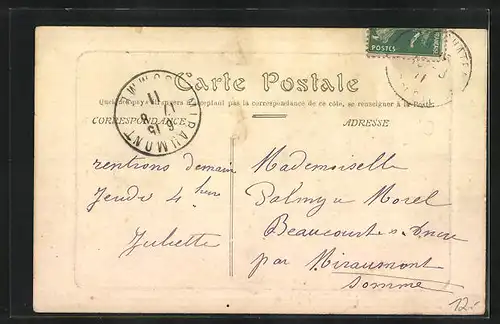 POSTES
Carte Postale
Quelques pays étrangers n'acceptant pas la correspondance de ce côté, se renseigner à la Poste
CORRESPONDANCE
ADRESSE
MIRAUMONT
SOMME
rentrons demain
Jeudi 4 heures
Juliette
Mademoiselle
Palmyre Morel
Beaucourt s. Ancre
par Miraumont
Somme
12.-